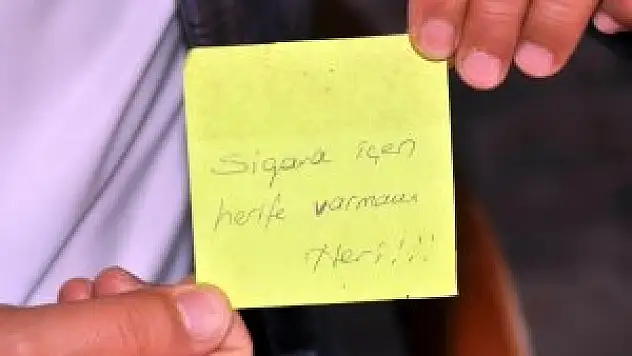 Sigara içen
herife varmam
Neri!!!